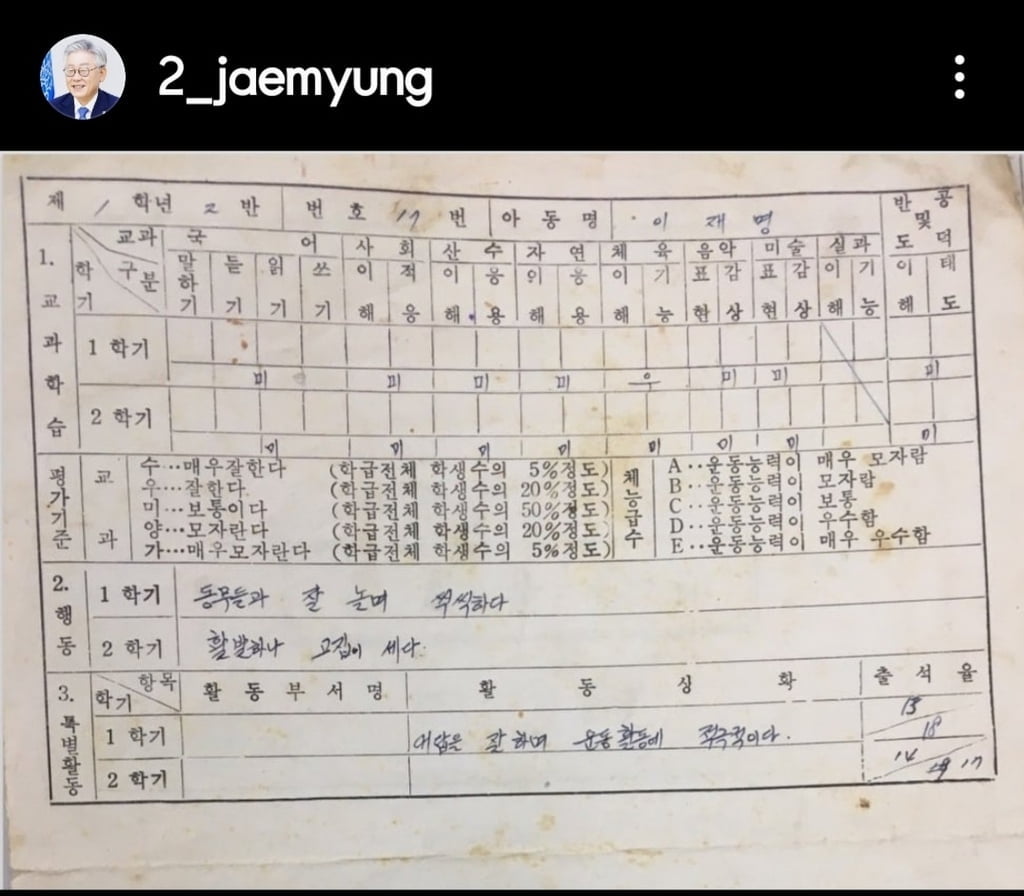 2_jaemyung
제 1 학년 2 반 번 호 17 번 아 동 명 이 재 명 반 공 및 도 덕
1. 교 과 학 습
교과 구분 학기 국 어 사 회 산 수 자 연 체 육 음악 미술 실과
말하기 듣기 읽기 쓰기 이해 적응 이해 응용 이해 응용 이해 기능 표현 감상 표현 감상 이해 기능 이해 태도
1 학기 미 미 미 미 우 미 미 미
2 학기 미 미 미 미 미 미 미 미
평가기준 교 과 체능급수
수…매우잘한다 (학급전체 학생수의 5%정도) A‥운동능력이 매우 모자람
우…잘한다. (학급전체 학생수의 20%정도) B‥운동능력이 모자람
미…보통이다 (학급전체 학생수의 50%정도) C‥운동능력이 보통
양…모자란다 (학급전체 학생수의 20%정도) D‥운동능력이 우수함
가…매우모자란다 (학급전체 학생수의 5%정도) E‥운동능력이 매우 우수함
2. 행 동
1 학기 동무들과 잘 놀며 씩씩하다
2 학기 활발하나 고집이 세다.
3. 특별활동
항목 학기 활 동 부 서 명 활 동 상 황 출 석 율
1 학기 대답은 잘 하며 운동활동에 적극적이다. 13 18
2 학기 14 17